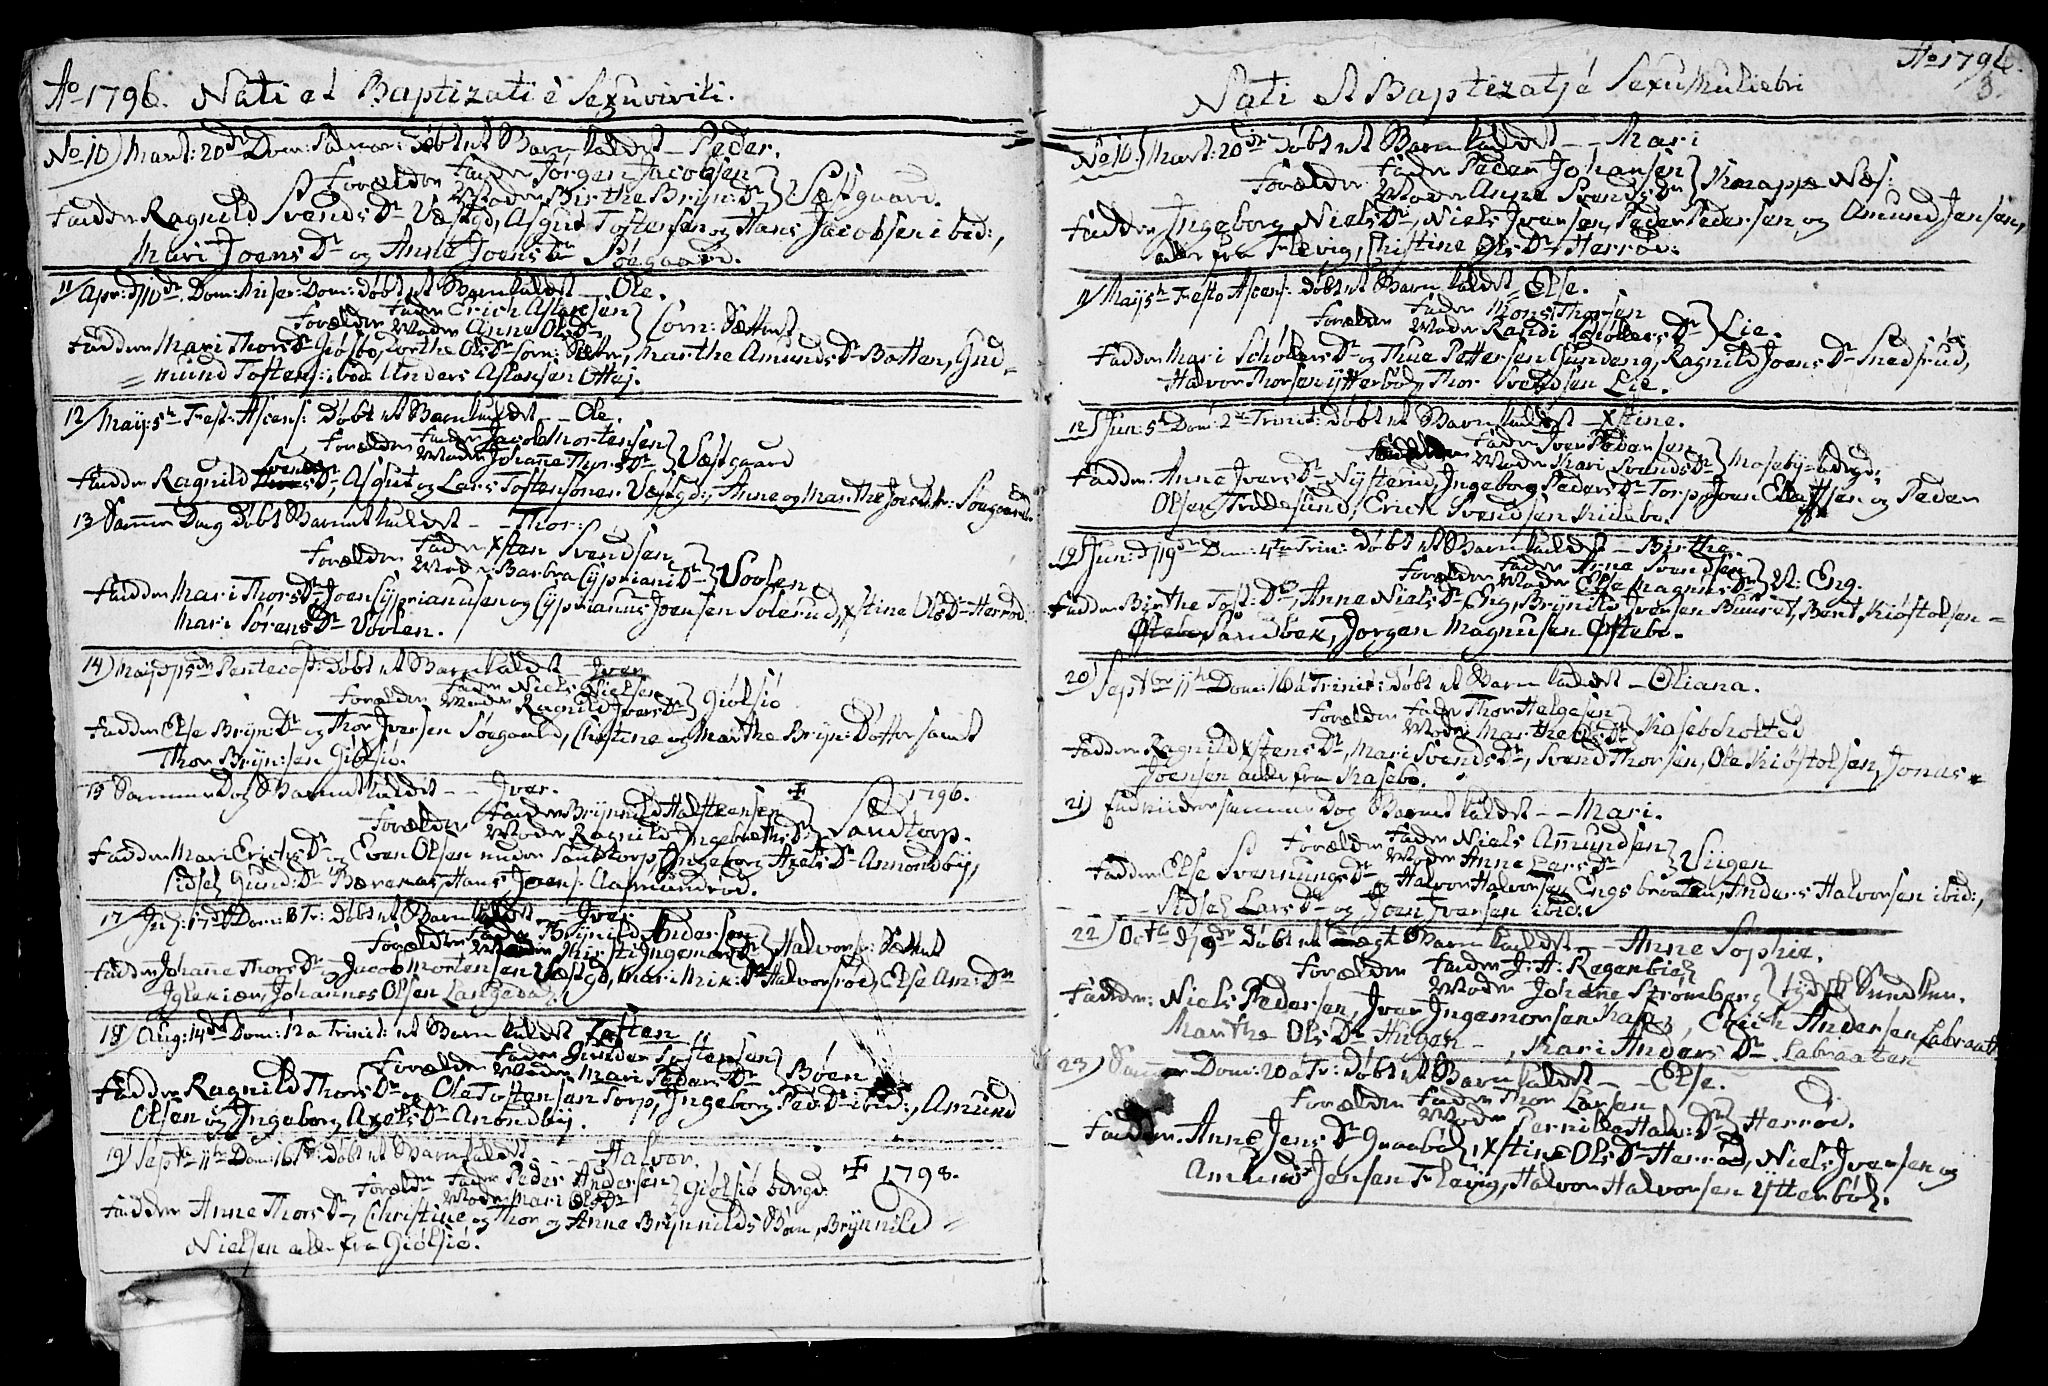 Ao 1796. Nati et Baptizati è Sexu virili.
No 10) Mart: 20de Dom: Palmar: døbt et Barn kaldet – Peder.
Forældre Fader Jørgen Jacobsen
Moder Birthe Bryn: Dr } Væstgaard.
Fadder Ragnild Svends Dr Væstgd, Asgut Tostensen og Hans Jacobsen ibid:,
Mari Joens Dr og Anne Joens Dr Søegaard.
11/ Apr: d 10de Dom: Miser: Dom: døbt et Barn kaldet – Ole.
Forældre Fader Erich Aslaksen
Moder Anne Ols Dr
Fadder Mari Thors Dr Giølsøe, Dorthe Ols Dr Sørn: Sætter, Marthe Amunds Dr Batten, Gud=
=mund Tostens: ibid: Anders Aslaksen Ottej.
12/ Maij: 5te Fest: Ascens: døbt et Barn kaldet – Ole.
Forældre Fader Jacob Mortensen
Moder Johanne Thors Dr } Væstgaard
Fadder Ragnild Svends Dr, Asgut og Lars Tostensøner Væstgd:, Anne og Marthe Joens Dr: Søegaard.
13 Samme Dag døbt Barnet kaldet – Thor:
Forældre Fader Xsten Svendsen
Moder Barbra Cypriani Dr } Voolen
Fadder Mari Thors Dr, Joen Cyprianusen og Cyprianus Joensen Solerud, Xstine Ols Dr Herrød.
Mari Sørens Dr Voolen.
14) Maij d 15de Pentecost: døbt et Barn kaldet – Iver
Forældre Fader Niels Nielsen
Moder Ragnild Ivers Dr } Giølsiø
Fadder Else Bryn: Dr og Thor Iversen Søegaard, Christine og Marthe Bryn: Døttr samt
Thor Bryn:sen Giølsiø.
15 Samme Dag Barnet kaldet – – Iver.
Forældre Fader Brynnild Halsteensen
Moder Ragnild Ingebreths Dr } Sandtorp. ‡ 1796.
Fadder Mari Erichs Dr og Even Olsen neder Sandtorp, Ingeborg Axels Dr Amondbÿ,
Sidsel Gund: Dr Bærenæs, Hans Joens: Aasmundrød.
17 Julj: 17de Dom: 8 Tr: døbt et Barn kaldet – Iver.
Forældre Fader Brynild Andersen
Moder Kirsti Ingemor Dr } Halvorsr: Sættet
Fadder Johanne Thors Dr Jacob Mortensen Væstgd, Mari Mik: Dr Halvorsrød, Else Am: Dr
Iglekiær, Johannes Olsen Langedal.
18/ Aug: 14de Dom: 12a Trinit: et Barn kaldet Tosten
Forældre Fader Gunder Tostensen
Moder Mari Peders Dr } Bøen
Fadder Ragnild Thors Dr og Ole Tostensen Torp, Ingeborg Ped: Dr ibid:, Amund
Olsen og Ingeborg Axels Dr Anondbÿ.
19) Septbr 11te Dom: 16 Tr: døbt et Barn kaldet – Halvor.
Forældre Fader Peder Andersen
Moder Mari Ols Dr } Giølsiø ‡ 1798.
Fadder Anne Thors Dr, Christine og Thor og Anne Brynnilds Børn, Brynnild=
Nielsen alle fra Giølsiø.
Ao 1796.
3.
Nati et Baptizatj è Sexu Muliebri
No 10. Mart: 20de døbt et Barn kaldet – – Mari
Forældre Fader Peder Johansen
Moder Anne Svends Dr } Knappe Næs:
Fadder Ingeborg Niels Dr, Niels Iversen, Peder Pedersen og Amund Jensen,
alle fra Flevig, Christine Ols Dr Herrød:
11/ Maij 5te Festo Ascens: døbt et Barn kaldet – Else.
Forældre Fader Mons Thorsen
Moder Randi Schølers Dr } Lie.
Fadder Mari Schølers Dr og Thue Pettersen Gundeng, Ragnild Joens Dr Snedsrud,
Halvor Thorsen Ytterbøl, Thor Svendsen Lie.
12 Jun: 5te Dom: 2da Trinit: døbt et Barn kaldet – Xstine.
Fader Iver Pedersen
Moder Mari Svends Dr } Moseby
Fadder Anne Ivers Dr Nysterud, Ingeborg Peders Dr Torp, Joen Ellefsen og Peder
Olsen Træddesund, Erick Svendsen Killebo.
19 Jun: d 19de Dom: 4ta Trin: døbt et Barn kaldet – Birthe.
Forældre Fader Arne Svendsen
Moder Else Magnus Dr } N: Eng.
Fadder Birthe Tost: Dr, Anne Niels Dr Eng, Brynild Iversen Buuret, Bent Kiøstolsen=
Sandbek, Jørgen Magnusen Østebo.
20) Septbr 11te Dom: 16d Trinit: døbt et Barn kaldet – Oliana.
Forældre Fader Thor Helgesen
Moder Marthe Ols Dr } Kaseboholted
Fadder Ragnild Xstens Dr, Mari Svends Dr, Svend Thorsen, Ole Kiøstolsen, Jonas
Joensen alle fra Kasebo.
21) samme Dag Barnet kaldet – – Mari.
Forældre Fader Niels Amundsen
Moder Anne Lars Dr } Viigen
Fadder Else Svennungs Dr og Halvor Halvorsen Engsbraaten, Anders Halvorsen ibid:,
– Sidsel Lars Dr og Joen Iversen ibid:
22) Octbr d 9de døbt et ægt Barn kaldet – Anne Sophie.
Forældre Fader J: A: Regenbiel
Moder Johane Strømberg
Fadder: Niels Pedersen, Ivar Ingemorsen, Erick Andersen Labraat
Marthe Ols Dr, Kari Anders Dr. Labraaten
23) Dom: 20a Tr: døbt et Barn kaldet – – Else.
Forældre Fader Thor Larsen
Moder Pernille Halv: Dr } Herrød.
Fadder Anne Jens Dr Graabøl, Xstine Ols Dr Herrød, Niels Iversen og
Amund Jensen Flevig, Halvor Halvorsen Ytterbøl.